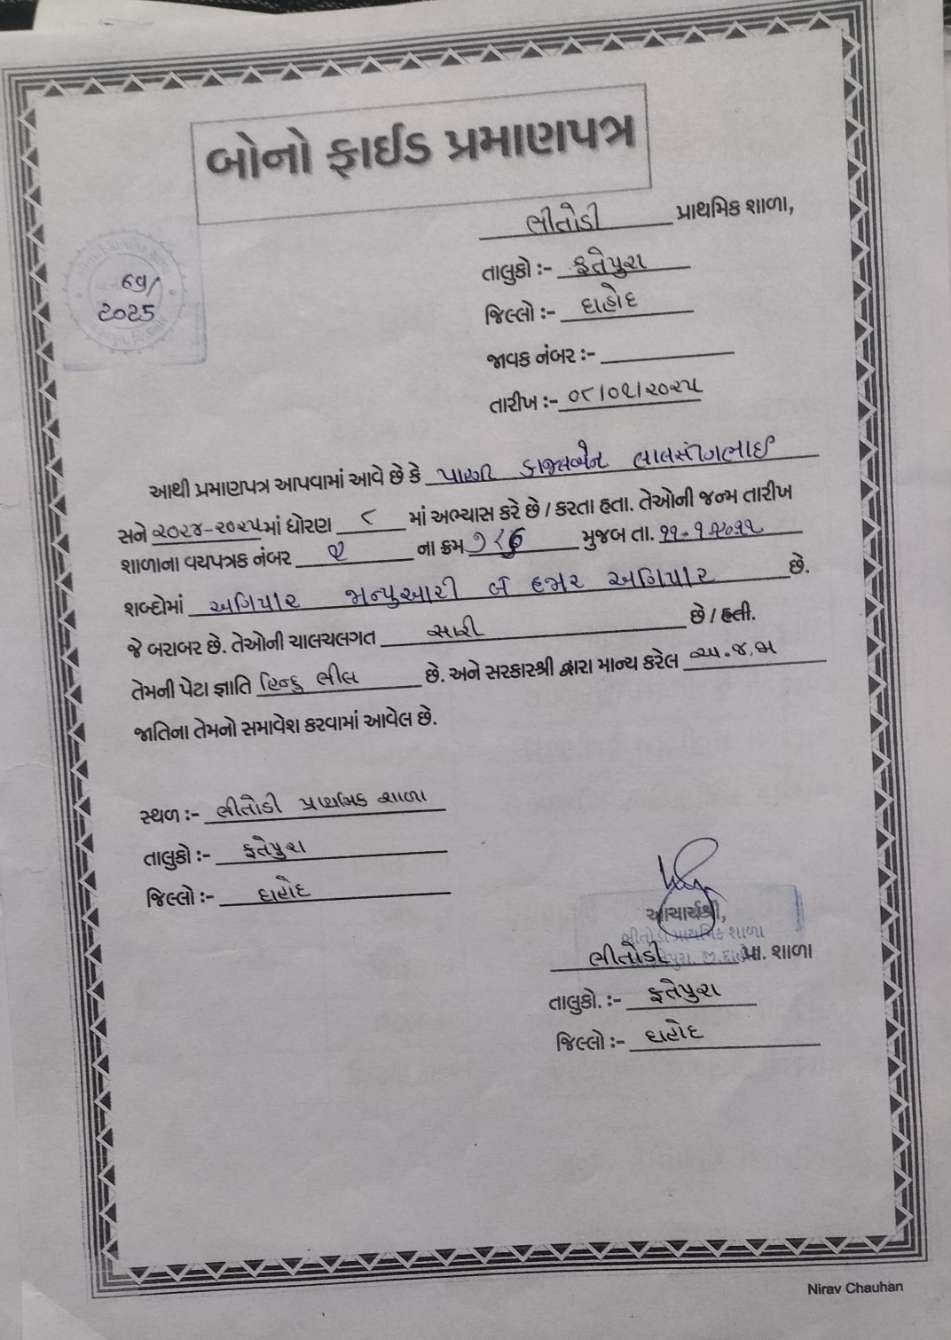 બોનો ફાઈડ પ્રમાણપત્ર
ભીતોડી પ્રાથમિક શાળા,
તાલુકો :- ફતેપુરા
જિલ્લો :- દાહોદ
જાવક નંબર :-
તારીખ :- ૦૮/૦૧/૨૦૨૫
69/
2025
આથી પ્રમાણપત્ર આપવામાં આવે છે કે પારગી કાજલબેન લાલસીંગભાઈ
સને ૨૦૨૪-૨૦૨૫ માં ધોરણ ૮ માં અભ્યાસ કરે છે / કરતા હતા. તેઓની જન્મ તારીખ
શાળાના વયપત્રક નંબર ના ક્રમ મુજબ તા. ૧૧.૧.૨૦૧૧
શબ્દોમાં અગિયાર જાન્યુઆરી બે હજાર અગિયાર છે.
જે બરાબર છે. તેઓની ચાલચલગત સારી છે / હતી.
તેમની પેટા જ્ઞાતિ હિન્દુ ભીલ છે. અને સરકારશ્રી દ્વારા માન્ય કરેલ અ.જ.જા
જાતિના તેમનો સમાવેશ કરવામાં આવેલ છે.
સ્થળ :- ભીતોડી પ્રાથમિક શાળા
તાલુકો :- ફતેપુરા
જિલ્લો :- દાહોદ
આચાર્યશ્રી,
ભીતોડી પ્રાથમિક શાળા
ભીતોડી પ્રા. શાળા
તાલુકો. :- ફતેપુરા
જિલ્લો :- દાહોદ
Nirav Chauhan